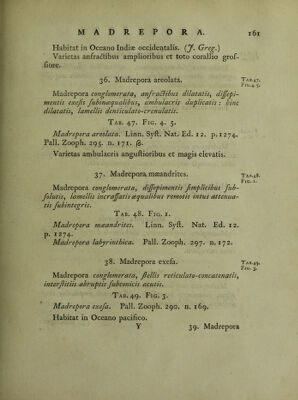 MADREPORA. 161
Habitat in Oceano Indiæ occidentalis. (J. Greg.)
Varietas anfractibus amplioribus et toto corallio gros-
siore.
36. Madrepora areolata. TAB.47.
FIG.4.5.
Madrepora conglomerata, anfractibus dilatatis, dissepi-
mentis exesis subinæqualibus, ambulacris duplicatis: hinc
dilatatis, lamellis denticulato-crenulatis.
TAB. 47. FIG. 4. 5.
Madrepora areolata. Linn. Syst. Nat. Ed. 12. p. 1274.
Pall. Zooph. 295. n. 171. β.
Varietas ambulacris angustioribus et magis elevatis.
37. Madrepora mæandrites. TAB.48.
FIG.1.
Madrepora conglomerata, dissepimentis simplicibus sub-
solutis, lamellis incrassatis æqualibus remotis intus attenua-
tis subintegris.
TAB. 48. FIG. 1.
Madrepora mæandrites. Linn. Syst. Nat. Ed. 12.
p. 1274.
Madrepora labyrinthica. Pall. Zooph. 297. n. 172.
38. Madrepora exesa. TAB.49.
FIG.3.
Madrepora conglomerata, stellis reticulato-concatenatis,
interstitiis abruptis subconicis acutis.
TAB. 49. FIG. 3.
Madrepora exesa. Pall. Zooph. 290. n. 169.
Habitat in Oceano pacifico.
Y 39. Madrepora